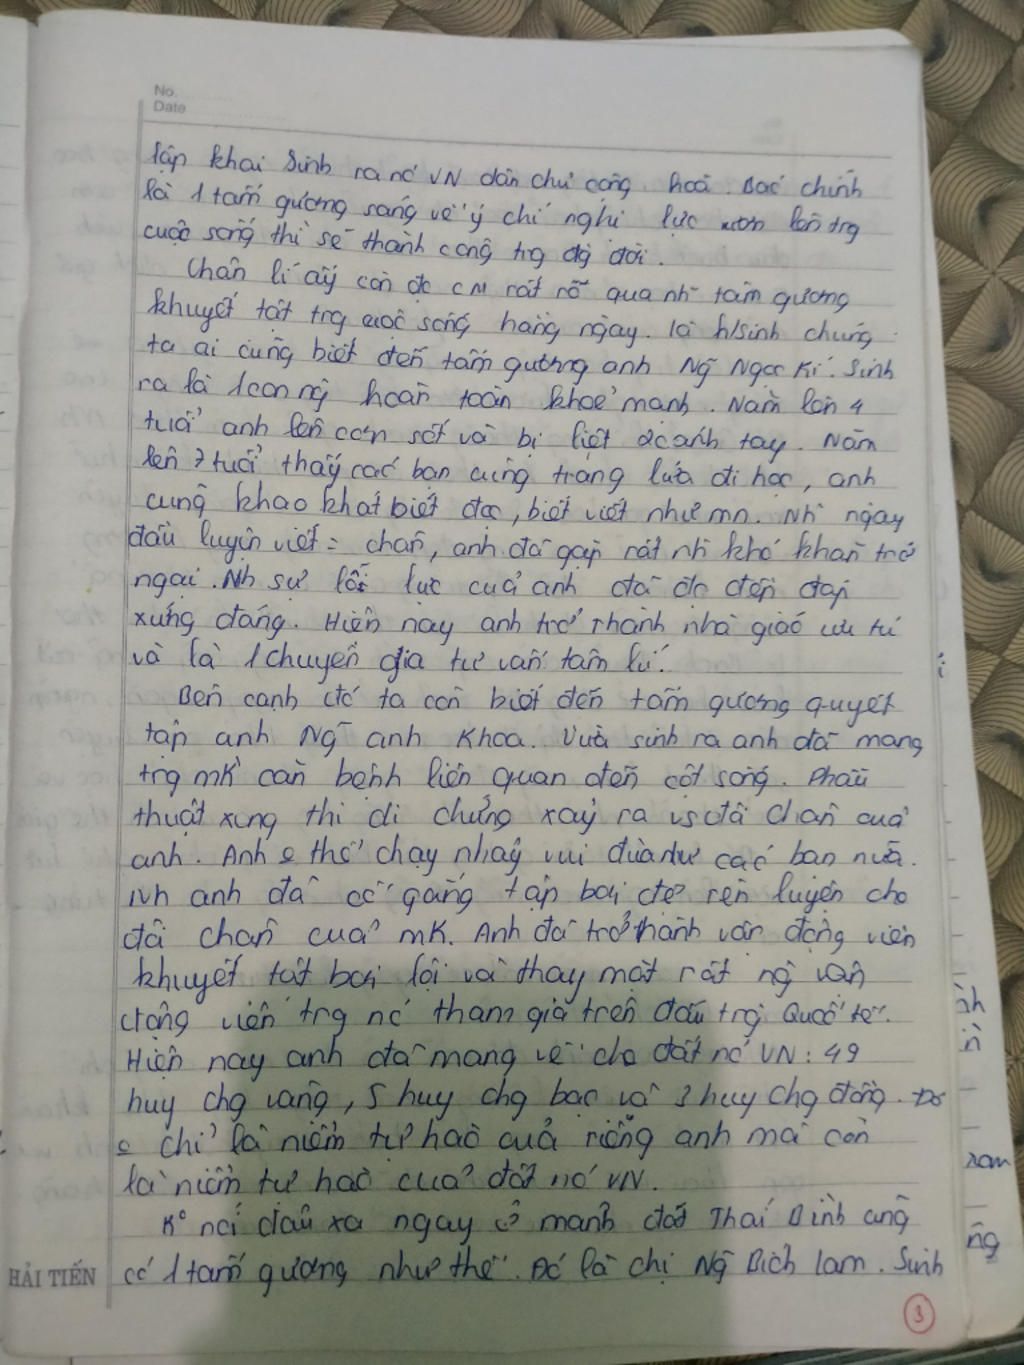 No.
Date
lập khai sinh ra nc' VN dân chủ cộng hoà. Bác chính
là 1 tấm gương sáng về ý chí nghị lực vươn lên trg
cuộc sống thì sẽ thành công trg đg đời.
Chân lí ấy còn đc CM rất rõ qua nh~ tấm gương
khuyết tật trg cuộc sống hàng ngày. là h/sinh chúng
ta ai cũng biết đến tấm gương anh Ng~ Ngọc Kí. Sinh
ra là 1 con ng` hoàn toàn khoẻ mạnh. Năm lên 4
tuổi anh lên cơn sốt và bị liệt 2 cánh tay. Năm
lên 7 tuổi thấy các bạn cùng trang lứa đi học, anh
cũng khao khát biết đọc, biết viết như mn. Nh~ ngày
đầu luyện viết = chân, anh đã gặp rất nh` khó khăn trở
ngại. Nh sự lỗ lực của anh đã đc đền đáp
xứng đáng. Hiện nay anh trở thành nhà giáo ưu tú
và là 1 chuyên gia tư vấn tâm lí.
Bên cạnh đó ta còn biết đến tấm gương quyết
tập anh Ng~ anh Khoa. Vừa sinh ra anh đã mang
trg mk căn bệnh liên quan đến cột sống. Phẫu
thuật xong thì di chứng xảy ra vs đôi chân của
anh. Anh o thể chạy nhảy vui đùa như các bạn nữa.
Nh anh đã cố gắng tập bơi để rèn luyện cho
đôi chân của mk. Anh đã trở thành vận động viên
khuyết tật bơi lội và thay mặt rất ng` vận
động viên trg nc' tham gia trên đấu trg` Quốc tế.
Hiện nay anh đã mang về cho đất nc' VN: 49
huy chg vàng, 5 huy chg bạc và 3 huy chg đồng. Đó
o chỉ là niềm tự hào của riêng anh mà còn
là niềm tự hào của đất nc' VN.
K° nói đâu xa ngay ở mảnh đất Thái Bình cũng
có 1 tấm gương như thế. Đó là chị Ng~ Bích Lam. Sinh
HẢI TIẾN
3